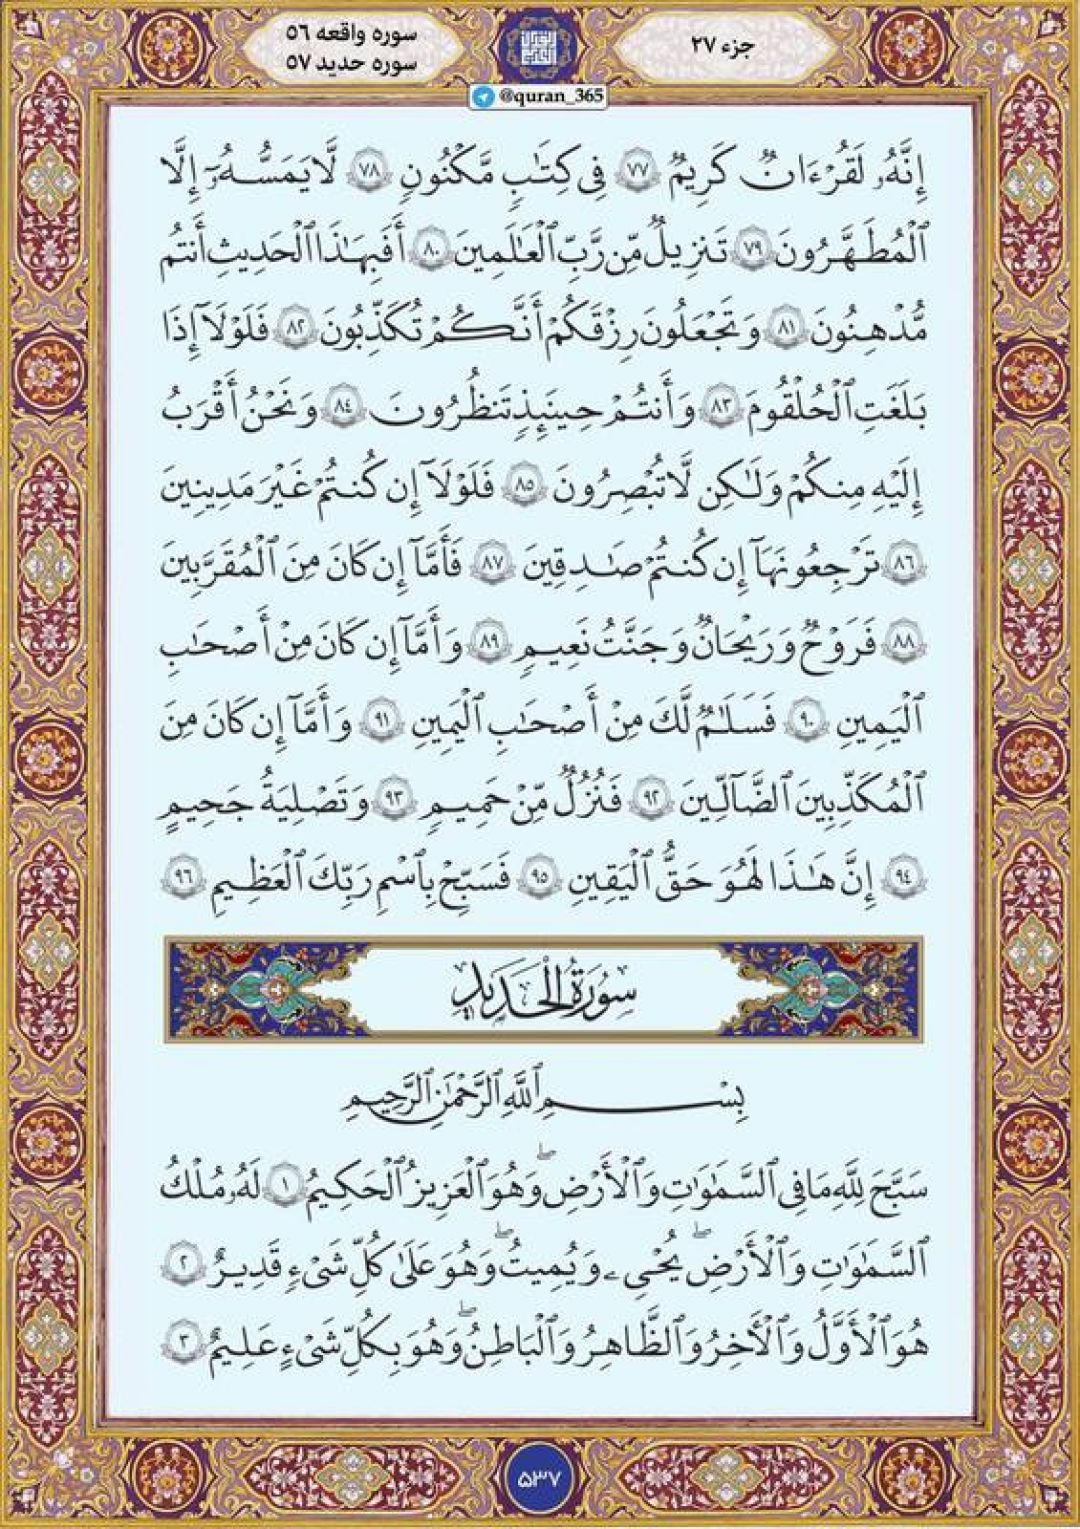 سوره واقعه ۵۶
سوره حدید ۵۷
جزء ۲۷
@quran_365
إِنَّهُۥ لَقُرْءَانٌ كَرِيمٌ ٧٧ فِى كِتَـٰبٍ مَّكْنُونٍ ٧٨ لَّا يَمَسُّهُۥٓ إِلَّا
ٱلْمُطَهَّرُونَ ٧٩ تَنزِيلٌ مِّن رَّبِّ ٱلْعَـٰلَمِينَ ٨٠ أَفَبِهَـٰذَا ٱلْحَدِيثِ أَنتُم
مُّدْهِنُونَ ٨١ وَتَجْعَلُونَ رِزْقَكُمْ أَنَّكُمْ تُكَذِّبُونَ ٨٢ فَلَوْلَآ إِذَا
بَلَغَتِ ٱلْحُلْقُومَ ٨٣ وَأَنتُمْ حِينَئِذٍ تَنظُرُونَ ٨٤ وَنَحْنُ أَقْرَبُ
إِلَيْهِ مِنكُمْ وَلَـٰكِن لَّا تُبْصِرُونَ ٨٥ فَلَوْلَآ إِن كُنتُمْ غَيْرَ مَدِينِينَ
٨٦ تَرْجِعُونَهَآ إِن كُنتُمْ صَـٰدِقِينَ ٨٧ فَأَمَّآ إِن كَانَ مِنَ ٱلْمُقَرَّبِينَ
٨٨ فَرَوْحٌ وَرَيْحَانٌ وَجَنَّتُ نَعِيمٍ ٨٩ وَأَمَّآ إِن كَانَ مِنْ أَصْحَـٰبِ
ٱلْيَمِينِ ٩٠ فَسَلَـٰمٌ لَّكَ مِنْ أَصْحَـٰبِ ٱلْيَمِينِ ٩١ وَأَمَّآ إِن كَانَ مِنَ
ٱلْمُكَذِّبِينَ ٱلضَّآلِّينَ ٩٢ فَنُزُلٌ مِّنْ حَمِيمٍ ٩٣ وَتَصْلِيَةُ جَحِيمٍ
٩٤ إِنَّ هَـٰذَا لَهُوَ حَقُّ ٱلْيَقِينِ ٩٥ فَسَبِّحْ بِٱسْمِ رَبِّكَ ٱلْعَظِيمِ ٩٦
سُورَةُ الْحَدِيدِ
بِسْمِ ٱللَّهِ ٱلرَّحْمَـٰنِ ٱلرَّحِيمِ
سَبَّحَ لِلَّهِ مَا فِى ٱلسَّمَـٰوَٰتِ وَٱلْأَرْضِ ۖ وَهُوَ ٱلْعَزِيزُ ٱلْحَكِيمُ ١ لَهُۥ مُلْكُ
ٱلسَّمَـٰوَٰتِ وَٱلْأَرْضِ ۖ يُحْىِۦ وَيُمِيتُ ۖ وَهُوَ عَلَىٰ كُلِّ شَىْءٍ قَدِيرٌ ٢
هُوَ ٱلْأَوَّلُ وَٱلْـَٔاخِرُ وَٱلظَّـٰهِرُ وَٱلْبَاطِنُ ۖ وَهُوَ بِكُلِّ شَىْءٍ عَلِيمٌ ٣
۵۳۷